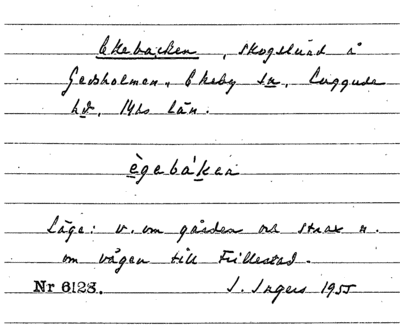 Ekebacken, skogslund å
Gedsholmen, Ekeby sn, Luggude
hd, Mhs län.
ègebáken
Läge: v. om gården och strax n.
om vägen till Fillestad.
Nr 6128. I. Ingers 1955